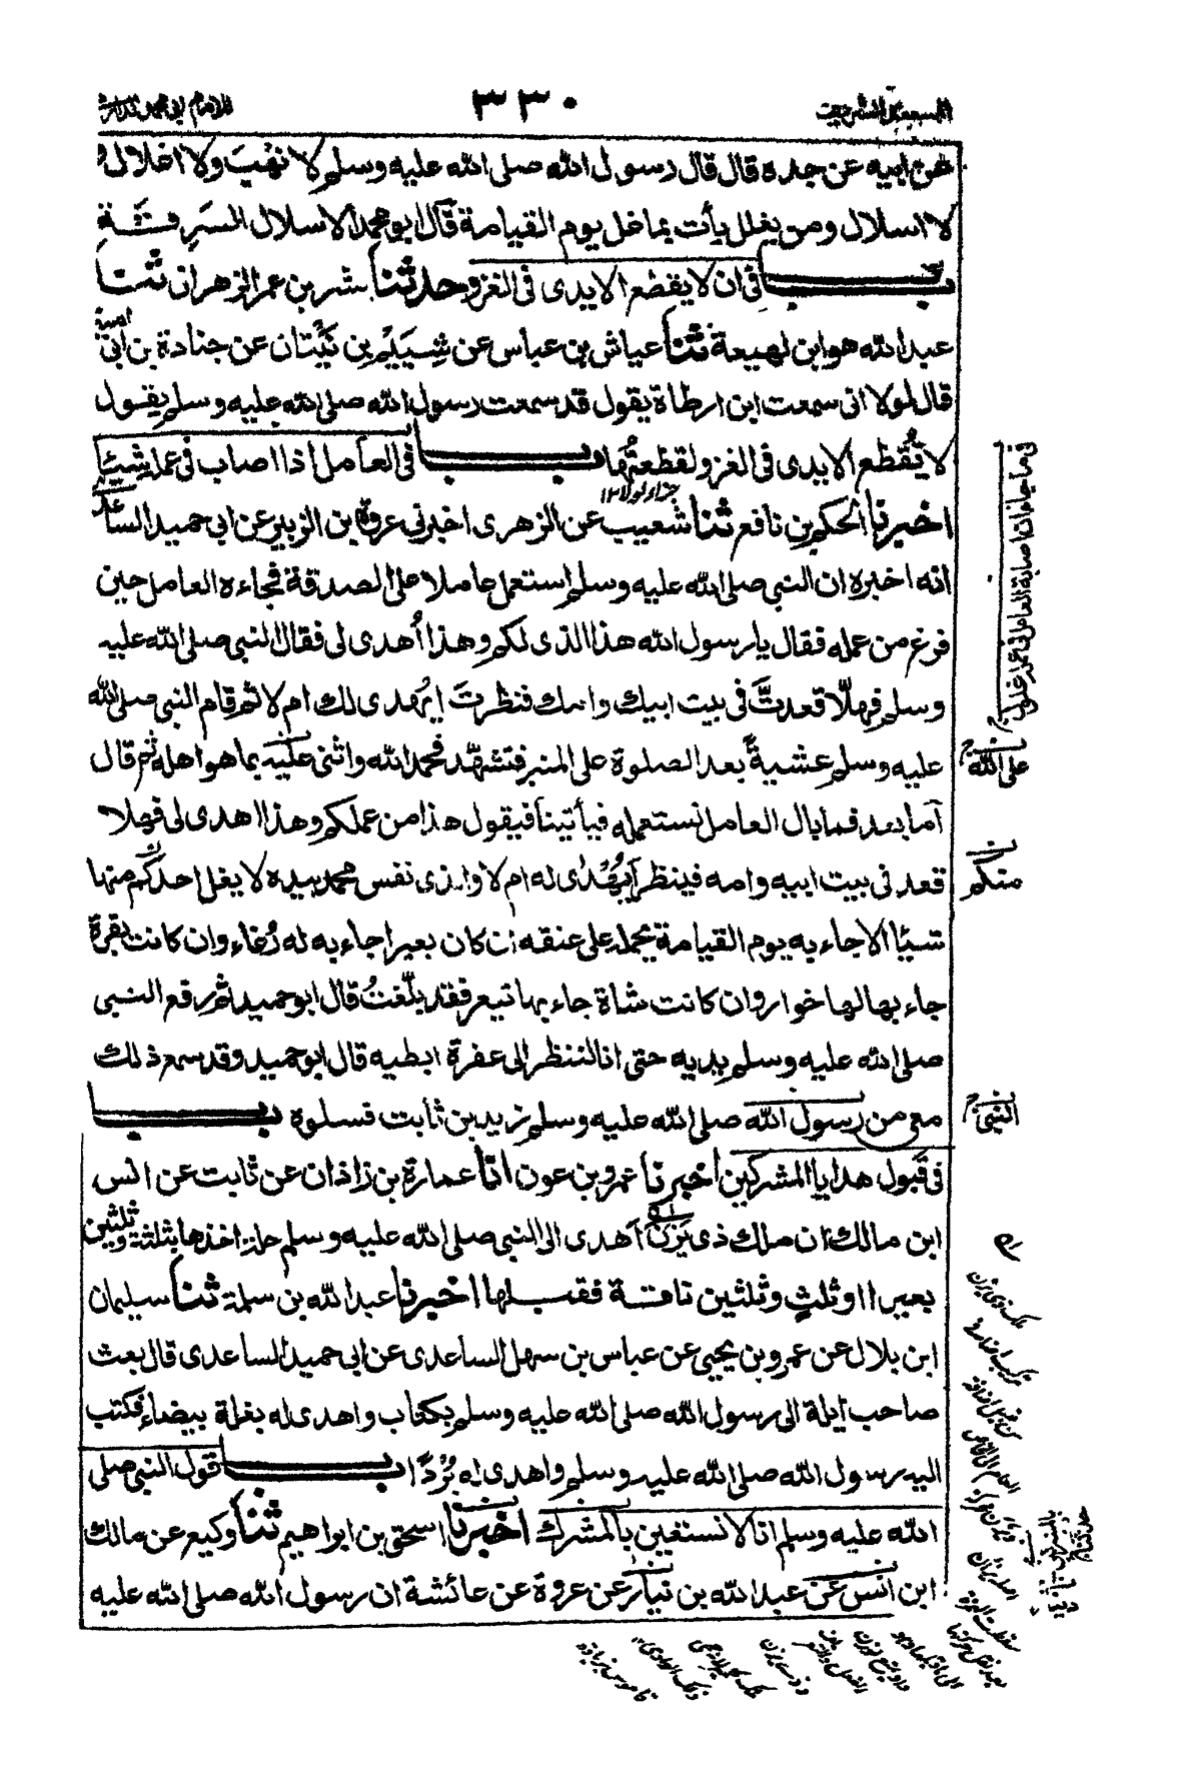 ٣٣٠
عن ابيه عن جده قال قال رسول الله صلى الله عليه وسلم لا نهب ولا اغلال و
لا اسلال ومن يغلل يأت بما غل يوم القيامة قال ابو محمد الاسلال السرقة
باب فى ان لا يقطع الايدى فى الغزو حدثنا بشر بن عمر الزهرانى ثنا
عبد الله هو ابن لهيعة ثنا عياش بن عباس عن شييم بن بيتان عن جنادة بن ابى امية
قال لولا انى سمعت ابن ارطاة يقول قد سمعت رسول الله صلى الله عليه وسلم يقول
لا تُقطع الايدى فى الغزو لقطعتها باب فى العامل اذا اصاب فى عمله شيئا
جزاء لولا ١٢
اخبرنا الحكم بن نافع ثنا شعيب عن الزهرى اخبرنى عروة بن الزبير عن ابى حميد الساعدى
انه اخبره ان النبى صلى الله عليه وسلم استعمل عاملا على الصدقة فجاءه العامل حين
فرغ من عمله فقال يا رسول الله هذا الذى لكم وهذا أُهدى لى فقال النبى صلى الله عليه
وسلم فهلّا قعدتَّ فى بيت ابيك وامك فنظرتَ ايُهدى لك ام لا ثم قام النبى صلى الله
عليه وسلم عشيةً بعد الصلوة على المنبر فتشهّد فحمد الله واثنى عليه بما هو اهله ثم قال
اما بعد فما بال العامل نستعمله فيأتينا فيقول هذا من عملكم وهذا اهدى لى فهلا
قعد فى بيت ابيه وامه فينظر أيُهْدٰى له ام لا والذى نفس محمد بيده لا يغل احدكم منها
شيئا الا جاء به يوم القيامة يحمله على عنقه ان كان بعيرا جاء به له رُغاء وان كانت بقرة
جاء بها لها خوار وان كانت شاة جاء بها تيعر فقد بلّغتُ قال ابو حميد ثم رفع النبى
صلى الله عليه وسلم يديه حتى انا لننظر الى عفرة ابطيه قال ابو حميد وقد سمع ذلك
معى من رسول الله صلى الله عليه وسلم زيد بن ثابت فسلوه باب
فى قبول هدايا المشركين اخبرنا عمرو بن عون انا عمارة بن زاذان عن ثابت عن انس
ابن مالك ان ملك ذى يزن اهدى الى النبى صلى الله عليه وسلم حلة اخذها بثلثة وثلثين
بعيرا او ثلثٍ وثلثين ناقة فقبلها اخبرنا عبد الله بن مسلمة ثنا سليمان
ابن بلال عن عمرو بن يحيى عن عباس بن سهل الساعدى عن ابى حميد الساعدى قال بعث
صاحب ايلة الى رسول الله صلى الله عليه وسلم بكتاب واهدى له بغلة بيضاء فكتب
اليه رسول الله صلى الله عليه وسلم واهدى له بُرْدًا باب قول النبى صلى
الله عليه وسلم انا لا نستعين بالمشرك اخبرنا اسحق بن ابراهيم ثنا وكيع عن مالك
ابن انس عن عبد الله بن نيار عن عروة عن عائشة ان رسول الله صلى الله عليه
على الله
منكم
النبى